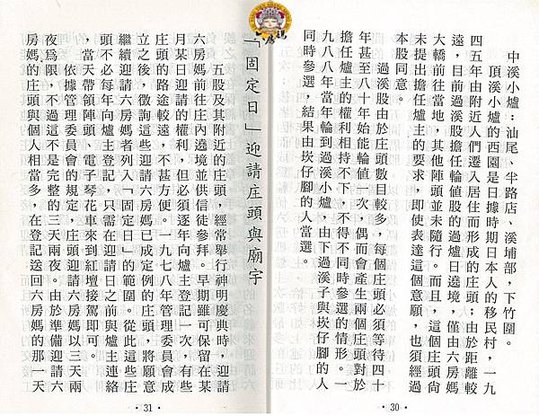 中溪小爐：汕尾、半路店、溪埔部，下竹圍。
頂溪小爐的西園是日據時期日本人的移民村，一九
四五年由附近人們遷入居住而形成的庄頭；由於距離較
遠，目前過溪股擔任輪值股的過爐日遶境，僅由六房媽
大轎前往當地，其他陣頭並未隨行。而且，這個庄頭尚
未提出擔任爐主的要求，即使表達這個意願，也須經過
本股同意。
過溪股由於庄頭數目較多，每個庄頭必須等待四十
年甚至八十年始能輪值一次，偶而會產生兩個庄頭對於
擔任爐主的權利相持不下，不得不同時參選的情形。一
九八八年當年輪到過溪小爐，由下過溪子與崁仔腳的人
同時參選，結果由崁仔腳的人當選。
30
六房媽
「固定日」迎請庄頭與廟宇
五股及其附近的庄頭，經常舉行神明慶典時，迎請
六房媽前往庄內遶境並供信徒參拜。早期雖可保留在某
月某日迎請的權利，但必須逐年向爐主登記一次，有些
庄頭的路途較遠，不甚方便。一九七八年管理委員會成
立之後，徵詢這些迎請六房媽已成定例的庄頭，將願意
繼續迎請六房媽者列入「固定日」的範圍。從此這些庄
頭不必每年向爐主登記，只需在迎請日之前與爐主連絡
，當天帶領陣頭、電子琴花車來到紅壇接駕即可。
依據管理委員會的規定，庄頭迎請六房媽以三天兩
夜為限，不過這不是完整的三天兩夜。由於準備迎請六
房媽的庄頭與個人相當多，在登記送回六房媽的那一天
31